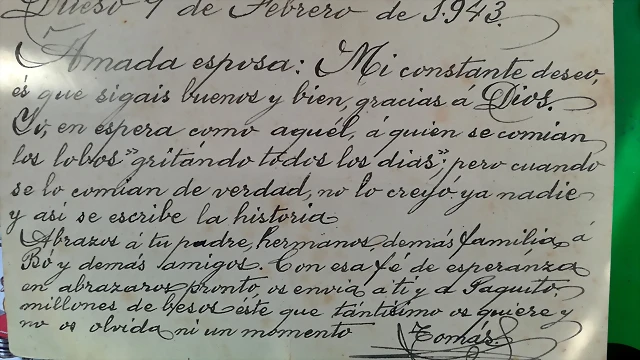 Dueso 9 de Febrero de 1.943.
Amada esposa: Mi constante deseo,
és que sigais buenos y bien, gracias á Dios.
Yo, en espera como aquél, á quien se comian
los lobos "gritándo todos los dias"; pero cuando
se lo comian de verdad, no lo creyó ya nadie
y así se escribe la historia
Abrazos á tu padre, hermanos, demás familia, á
Bó y demás amigos. Con esa fé de esperánza
en abrazaros pronto, os envia á ti y a Paquito,
millones de besos éste que tántisimo os quiere y
no os olvida ni un momento
Tomás.